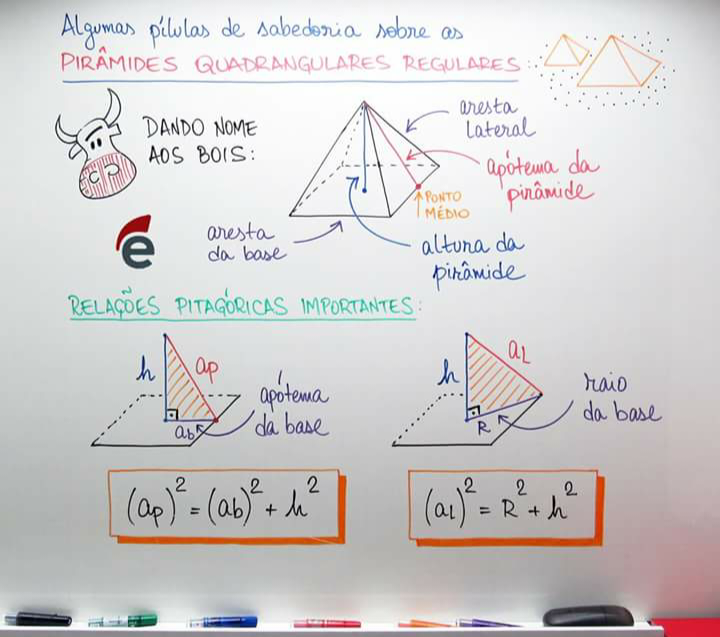 Algumas pílulas de sabedoria sobre as
PIRÂMIDES QUADRANGULARES REGULARES:
DANDO NOME
AOS BOIS:
aresta
lateral
apótema da
pirâmide
PONTO
MÉDIO
altura da
pirâmide
aresta
da base
e
RELAÇÕES PITAGÓRICAS IMPORTANTES:
h
ap
ab
apótema
da base
h
aL
R
raio
da base
(ap)² = (ab)² + h²
(aL)² = R² + h²